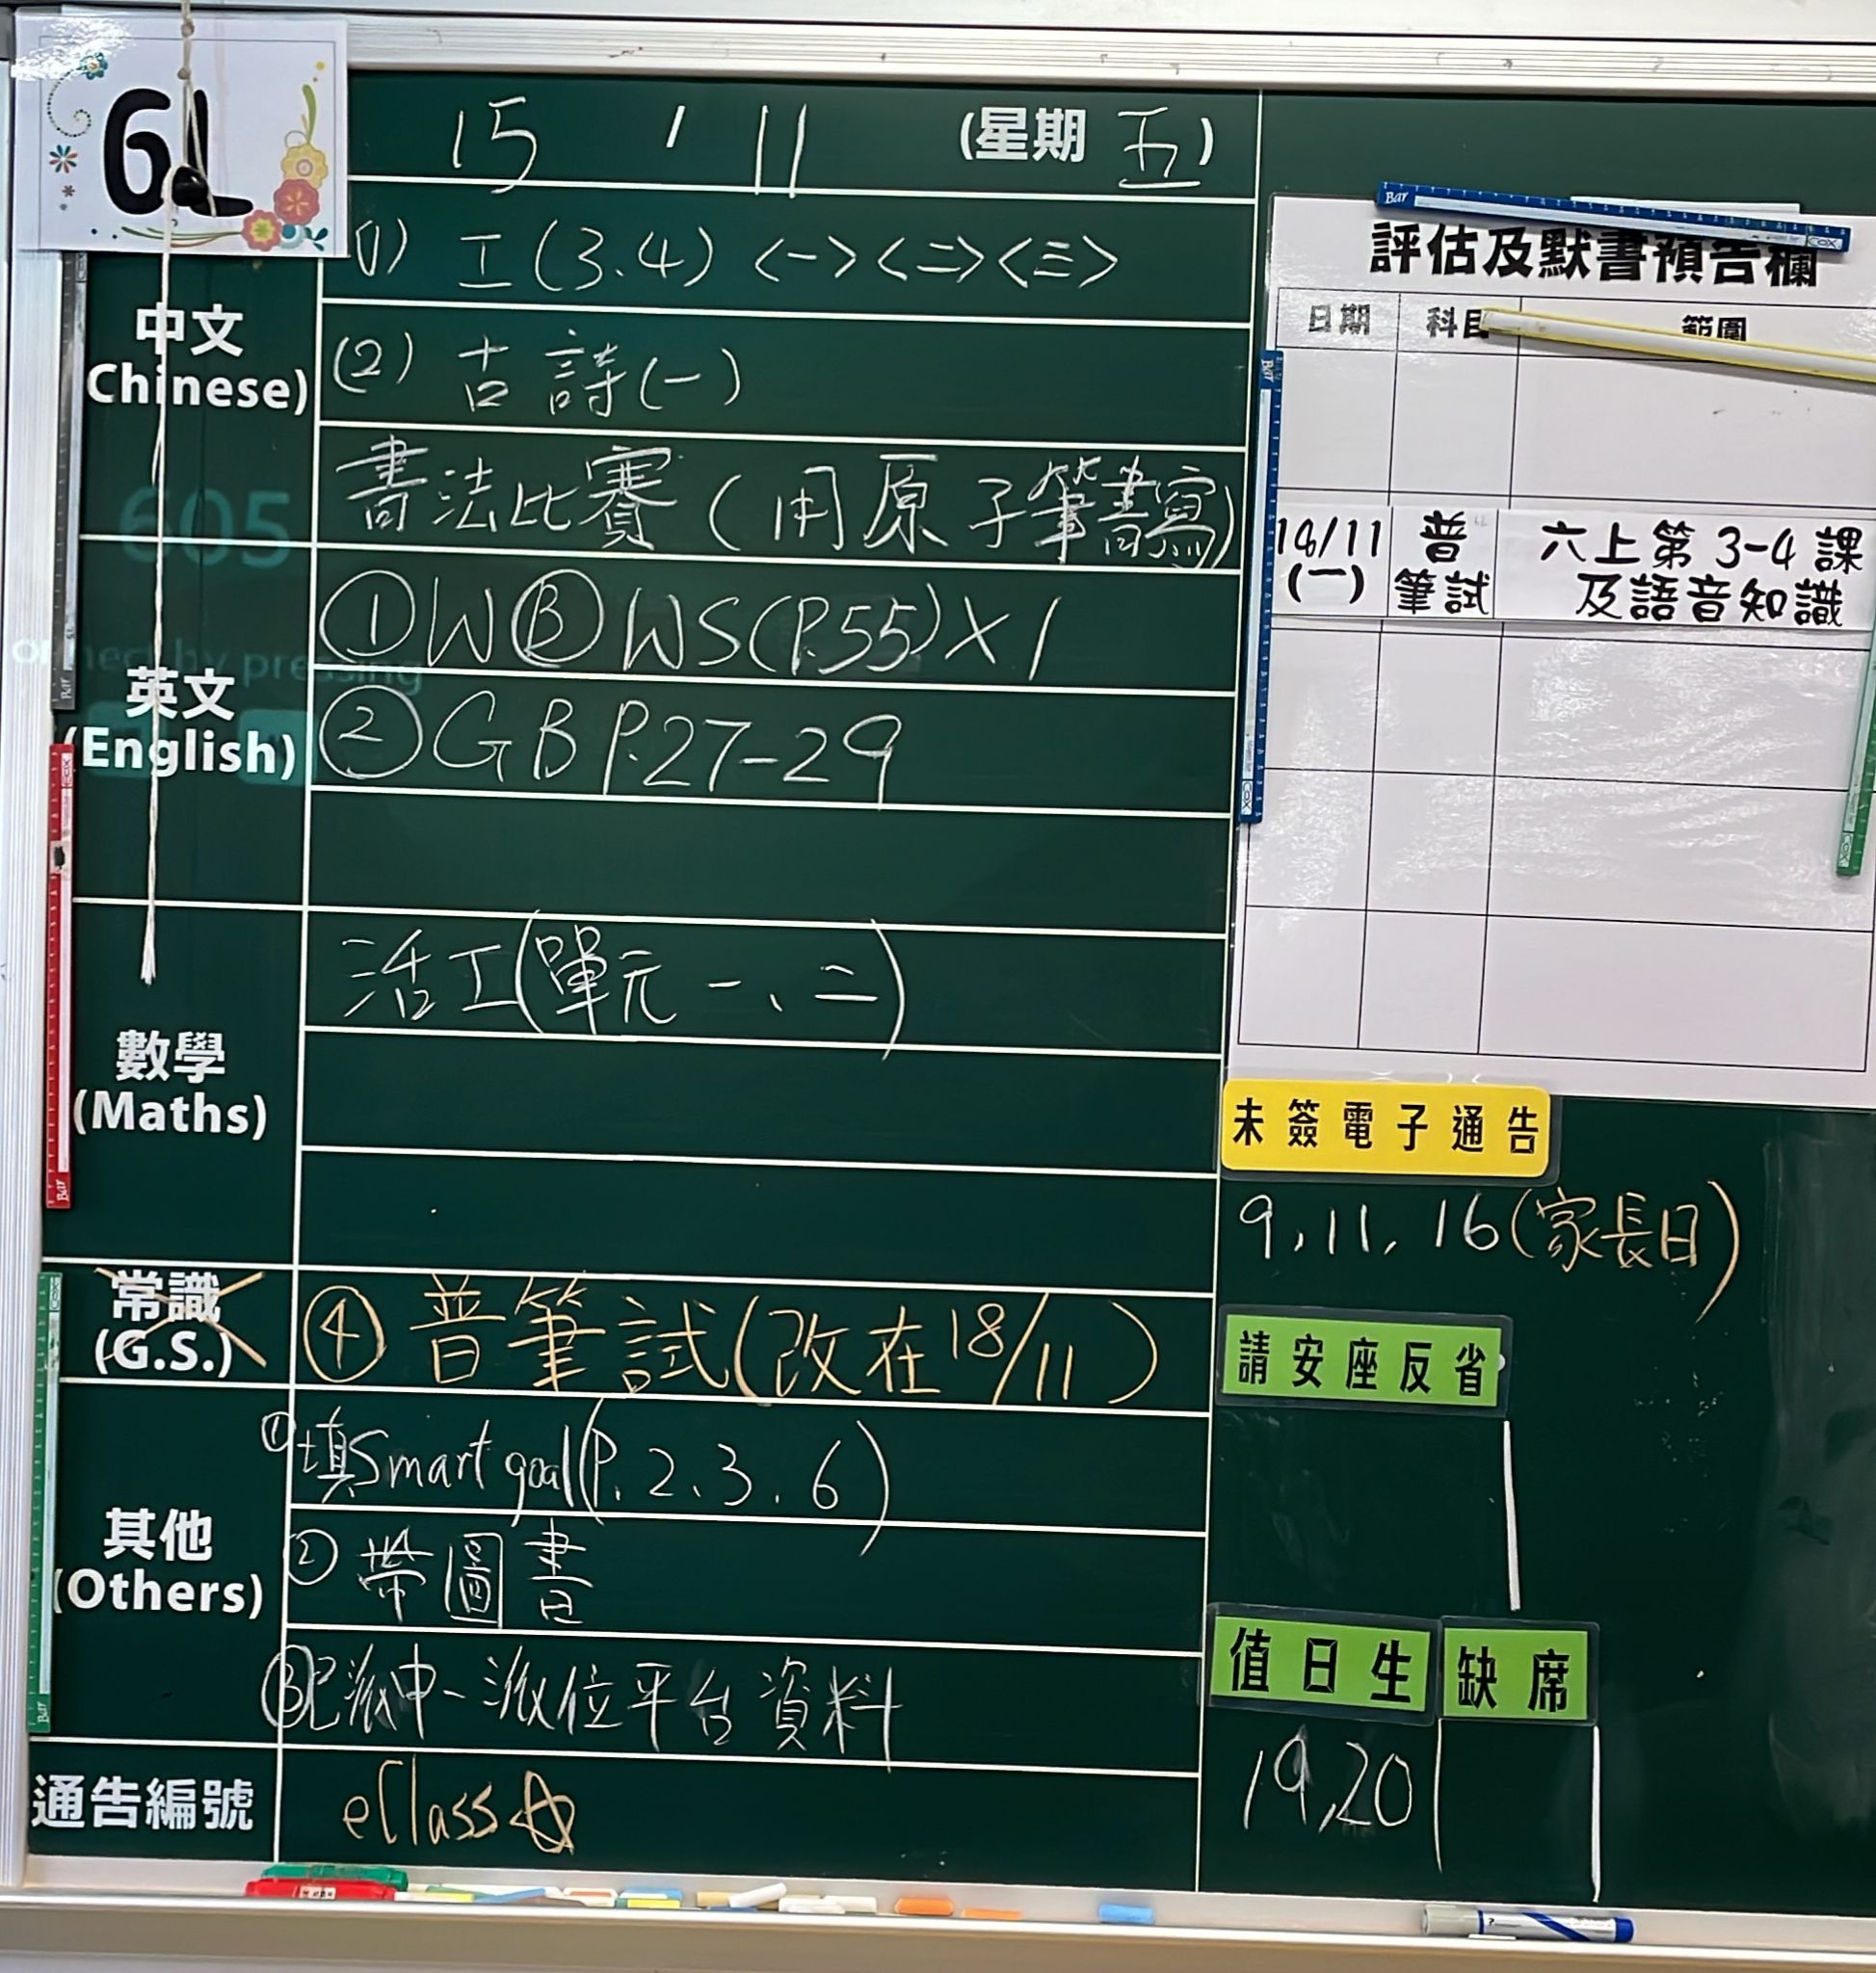 6L
15 / 11 (星期 五)
中文
(Chinese)
(1) 工(3.4) <一><二><三>
(2) 古詩(一)
書法比賽(用原子筆書寫)
605
英文
(English)
① W Ⓑ WS(P.55)×1
② GB P.27-29
數學
(Maths)
活工(單元一、二)
常識
(G.S.)
④ 普筆試(改在18/11)
其他
(Others)
①填Smart goal(P.2、3、6)
② 帶圖書
③ 中一派位平台資料
通告編號
eClass
評估及默書預告欄
日期 科目 範圍
18/11 (一) 普 筆試 六上第3-4課
及語音知識
未簽電子通告
9, 11, 16(家長日)
請安座反省
值日生 缺席
19,20